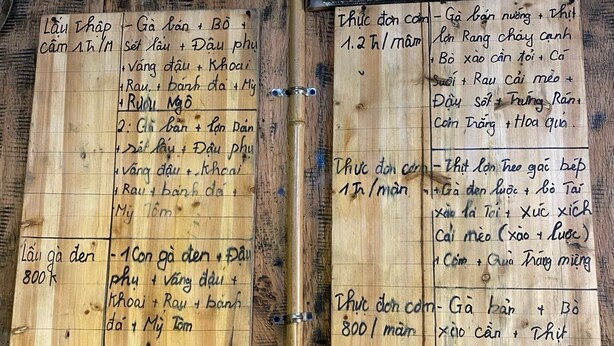 Lẩu Thập
cẩm 1 Tr/M
- Gà bản + Bò +
sét lẩu + Đậu phụ
+ Váng đậu + Khoai
+ Rau + bánh đa + Mỳ
+ Rượu Ngô
2: Gà bản + lợn bản
+ sét lẩu + Đậu phụ
+ Váng đậu + Khoai
+ Rau + bánh đa +
Mỳ Tôm
Lẩu gà đen
800K
- 1 Con gà đen + Đậu
phụ + Váng đậu +
Khoai + Rau + bánh
đá + Mỳ Tôm
Thực đơn cơm
1.2 Tr/mâm
- Gà bản nướng + Thịt
lợn Rang cháy cạnh
+ Bò xào cần tỏi + Cá
Suối + Rau cải mèo +
Đậu sốt + Trứng Rán +
Cơm Trắng + Hoa quả.
Thực đơn cơm
1 Tr/mân
- Thịt lợn Treo gác bếp
+ Gà đen luộc + bò Tái
xào lá Tỏi + Xúc xích
Cải mèo (xào + luộc)
+ Cơm + Quả Tráng miệng
Thực đơn cơm
800/mâm
- Gà bản + Bò
xào cần + Thịt